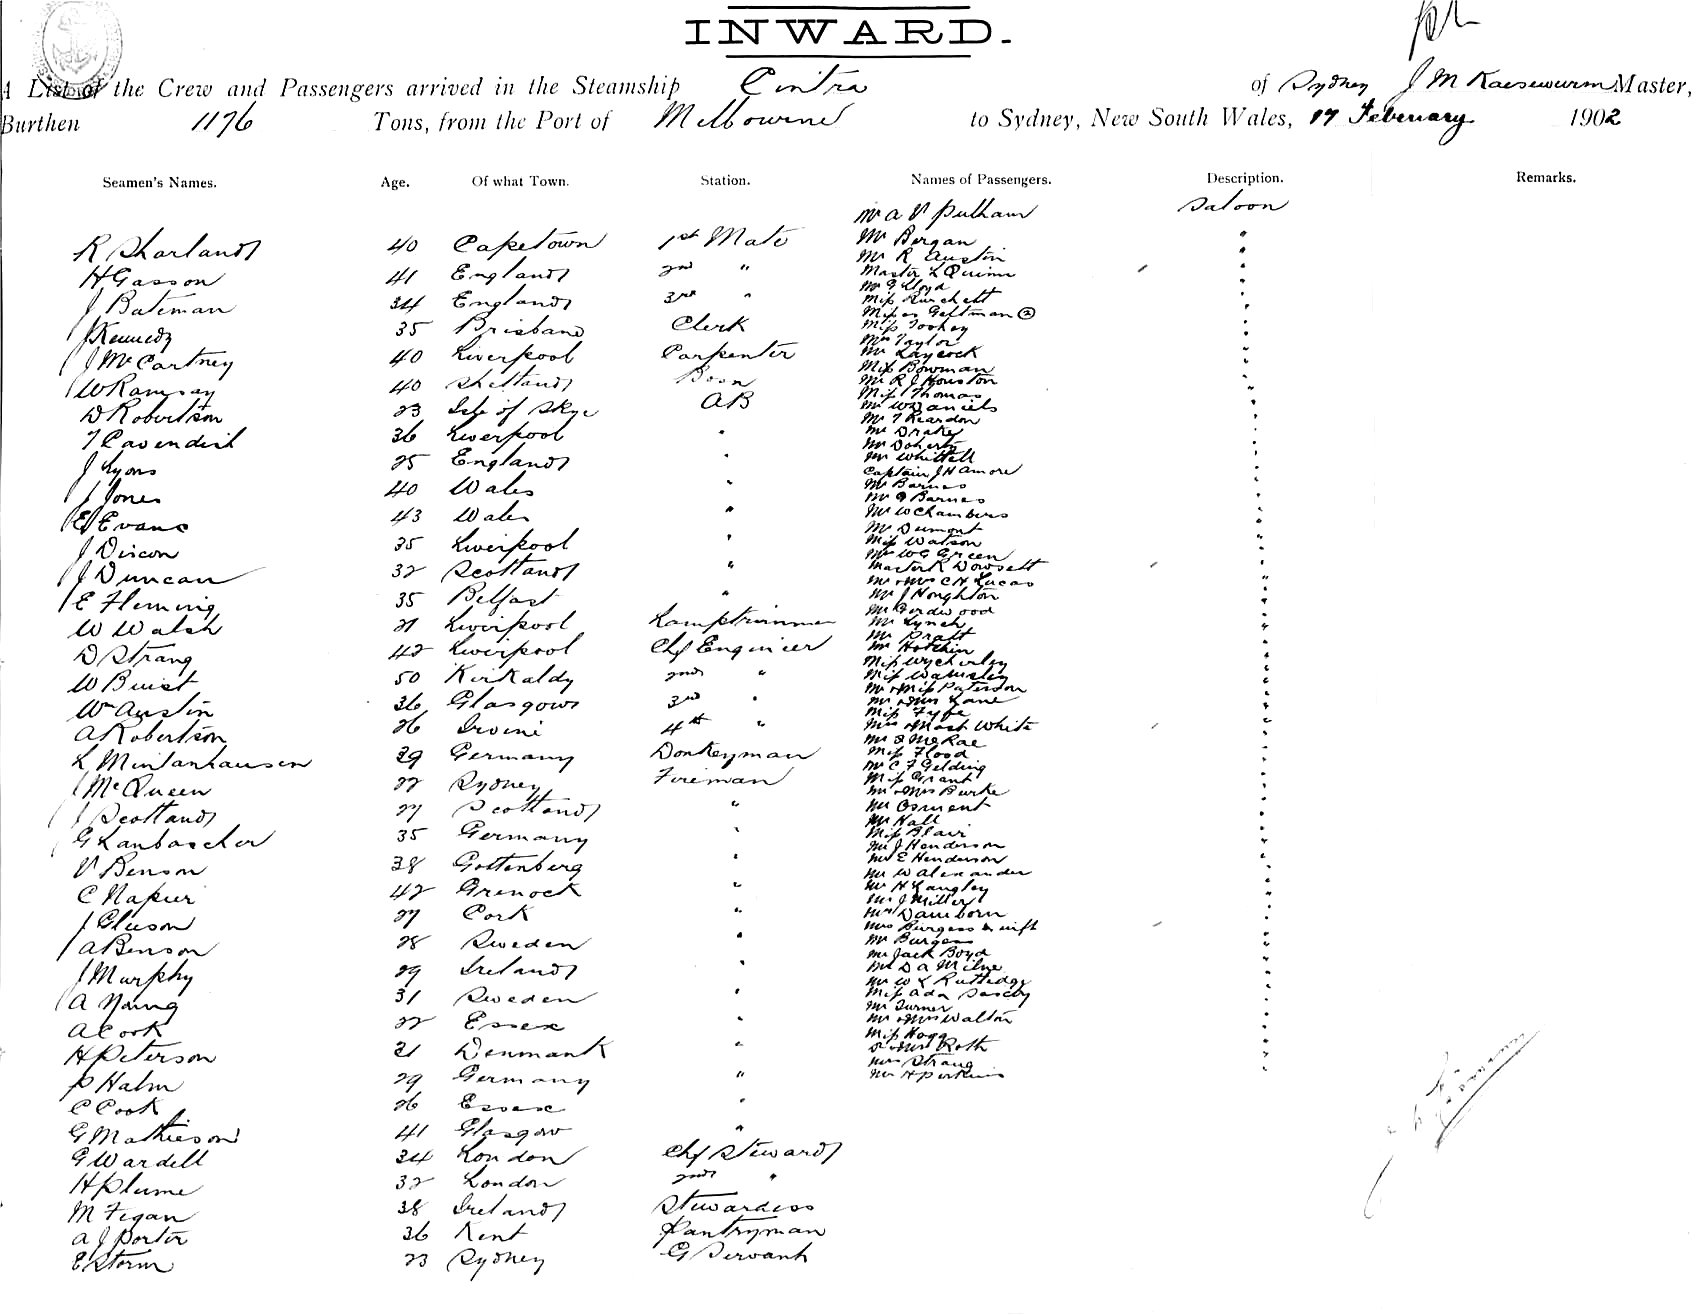 INWARD.
A List of the Crew and Passengers arrived in the Steamship Cintra of Sydney J M Kaesewurm Master,
Burthen 1176 Tons, from the Port of Melbourne to Sydney, New South Wales, 17 February 1902
Seamen's Names. Age. Of what Town. Station. Names of Passengers. Description. Remarks.
Mr A V Pulham Saloon
R Sharland 40 Capetown 1st Mate Mr Bergan "
Mr R Austin "
H Gasson 41 England 2nd " Master L Quinn "
Mr G Lloyd "
J Bateman 34 England 3rd " Miss Burchett "
Misses Geftman (2) "
J Kennedy 35 Brisbane Clerk Miss Toohey "
Mrs Taylor "
J McCartney 40 Liverpool Carpenter Mr Laycock "
Miss Bowman "
W Ramsay 40 Shetland Bosn Mr R J Houston "
Miss Thomas "
D Robertson 23 Isle of Skye AB Mr W Daniels "
Mr T Reardon "
T Cavendish 36 Liverpool " Mr Drake "
Mr Doherty "
J Lyons 25 England " Mr Whittell "
Captain J H Amore "
J Jones 40 Wales " Mr Barnes "
Mr G Barnes "
E Evans 43 Wales " Mr W Chambers "
Mr Dumont "
J Dixon 35 Liverpool " Miss Watson "
Mr W G Green "
J Duncan 32 Scotland " Master R Dowsett "
Mr & Mrs C H Lucas "
E Fleming 35 Belfast " Mr J Houghton "
Mr Girdwood "
W Walsh 21 Liverpool Lamptrimmer Mr Lynch "
Mr Pratt "
D Strang 42 Liverpool Chf Engineer Mr Hotchin "
Miss Wycherley "
W Buist 50 Kirkaldy 2nd " Miss Walmsley "
Mr & Miss Paterson "
Wm Austin 36 Glasgow 3rd " Mr & Mrs Lane "
Miss Fyfe "
A Robertson 26 Irvine 4th " Mrs & Mast White "
Mr D McRae "
L Mintanhausen 39 Germany Donkeyman Miss Flood "
Mr C F Gelding "
J McQueen 22 Sydney Fireman Miss Grant "
Mr & Mrs Burke "
J Scotland 27 Scotland " Mr Osment "
Mr Hall "
G Lanbascher 35 Germany " Miss Blair "
Mr J Henderson "
V Benson 38 Gottenberg " Mr E Henderson "
Mr W Alexander "
C Napier 42 Grenock " Mr H Langley "
Mr J Miller "
J Gleeson 27 Cork " Mrs Damborn "
Mrs Burgess & inft "
A Benson 28 Sweden " Mr Burgess "
Mr Jack Boyd "
J Murphy 29 Ireland " Mr D A Milne "
Mr W L Rutledge "
A Young 31 Sweden " Miss Ada "
Mr Turner "
A Cook 22 Essex " Mr & Mrs Walton "
Miss Hogg "
H Peterson 21 Denmark " & Mrs Roth "
Mrs Strang "
P Halm 29 Germany " Mr H Perkins "
C Cook 26 Essex "
G Mathieson 41 Glasgow "
G Wardell 34 London Chf Steward
H Plume 32 London 2nd "
M Figan 38 Ireland Stewardess
A J Porter 36 Kent Pantryman
E Storm 23 Sydney G Servant